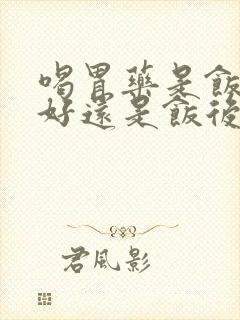 喝胃藥是飯
好還是飯後
君風影